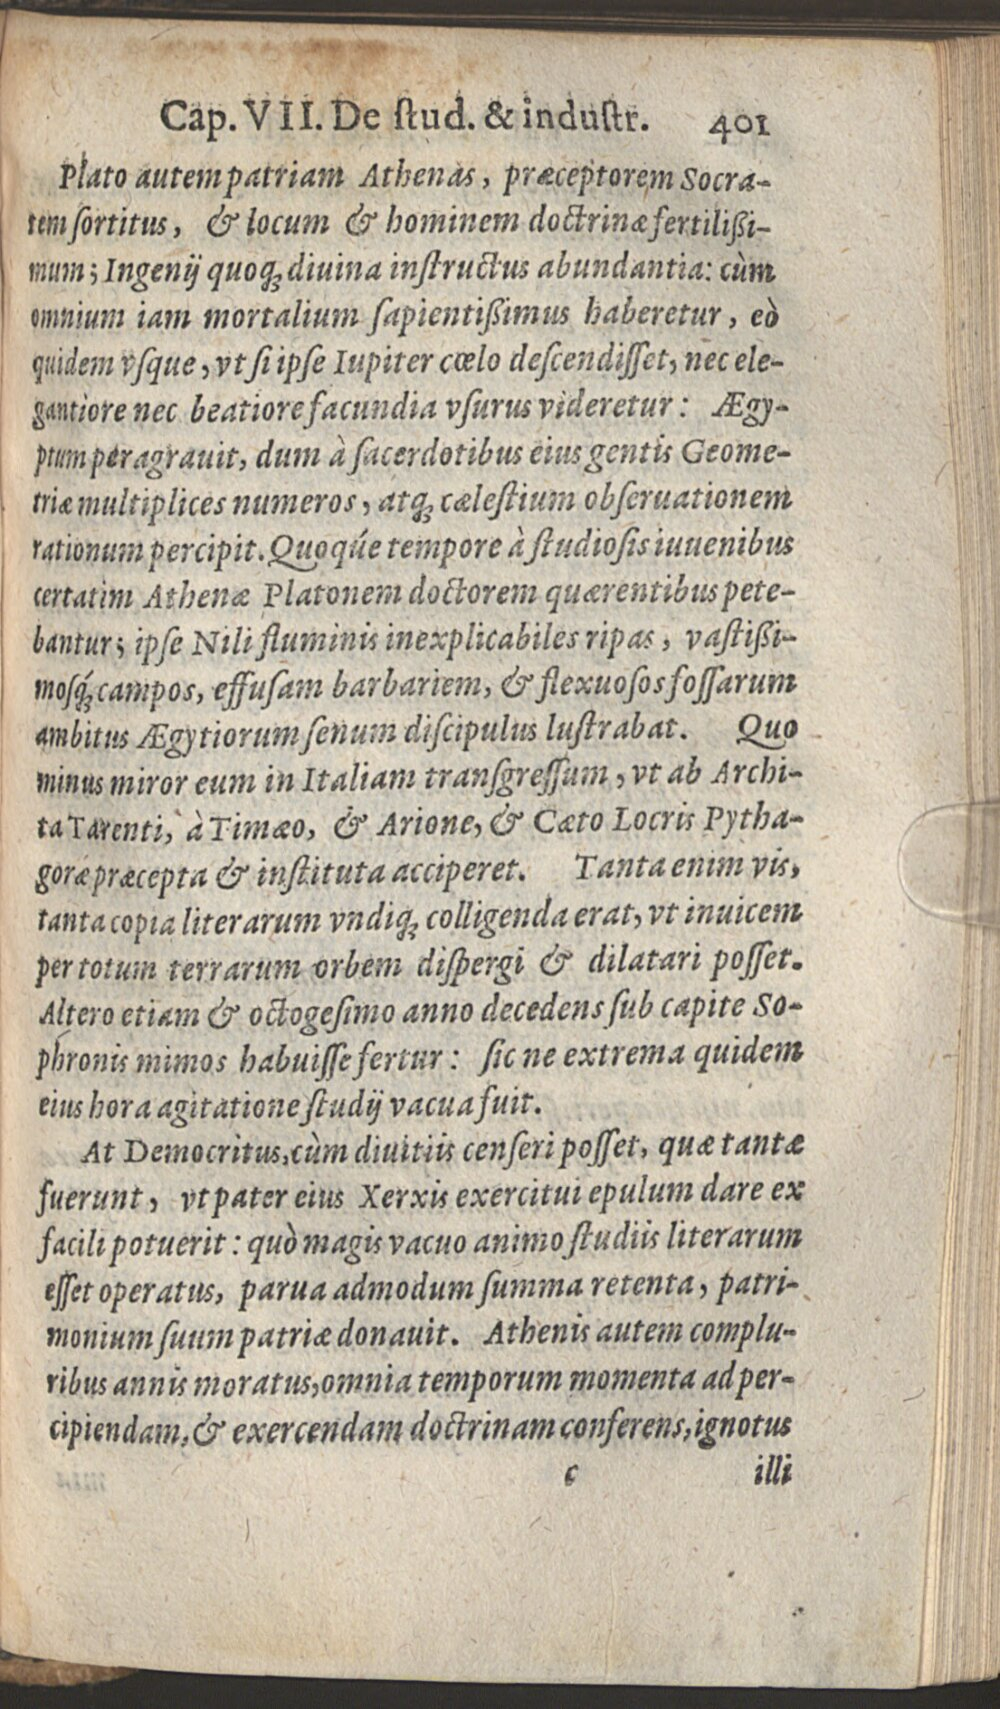 Cap. VII. De ſtud. & induſtr. 401
Plato autem patriam Athenas, præceptorem Socra-
tem ſortitus, & locum & hominem doctrinæ fertiliſsi-
mum; Ingenij quoq; diuina inſtructus abundantia: cùm
omnium iam mortalium ſapientiſsimus haberetur, eò
quidem vſque, vt ſi ipſe Iupiter cœlo deſcendiſſet, nec ele-
gantiore nec beatiore facundia vſurus videretur: Ægy-
ptum peragrauit, dum à ſacerdotibus eius gentis Geome-
triæ multiplices numeros, atq; cæleſtium obſeruationem
rationum percipit. Quoqúe tempore à ſtudioſis iuuenibus
certatim Athenæ Platonem doctorem quærentibus pete-
bantur; ipſe Nili fluminis inexplicabiles ripas, vaſtiſsi-
moſq́; campos, effuſam barbariem, & flexuoſos foſſarum
ambitus Ægytiorum ſenum diſcipulus luſtrabat. Quo
minus miror eum in Italiam tranſgreſſum, vt ab Archi-
ta Tarenti, à Timæo, & Arione, & Cæto Locris Pytha-
goræ præcepta & inſtituta acciperet. Tanta enim vis,
tanta copia literarum vndiq; colligenda erat, vt inuicem
per totum terrarum orbem diſpergi & dilatari poſſet.
Altero etiam & octogeſimo anno decedens ſub capite So-
phronis mimos habuiſſe fertur: ſic ne extrema quidem
eius hora agitatione ſtudij vacua fuit.
At Democritus, cùm diuitiis cenſeri poſſet, quæ tantæ
fuerunt, vt pater eius Xerxis exercitui epulum dare ex
facili potuerit: quò magis vacuo animo ſtudiis literarum
eſſet operatus, parua admodum ſumma retenta, patri-
monium ſuum patriæ donauit. Athenis autem complu-
ribus annis moratus, omnia temporum momenta ad per-
cipiendam, & exercendam doctrinam conferens, ignotus
c illi